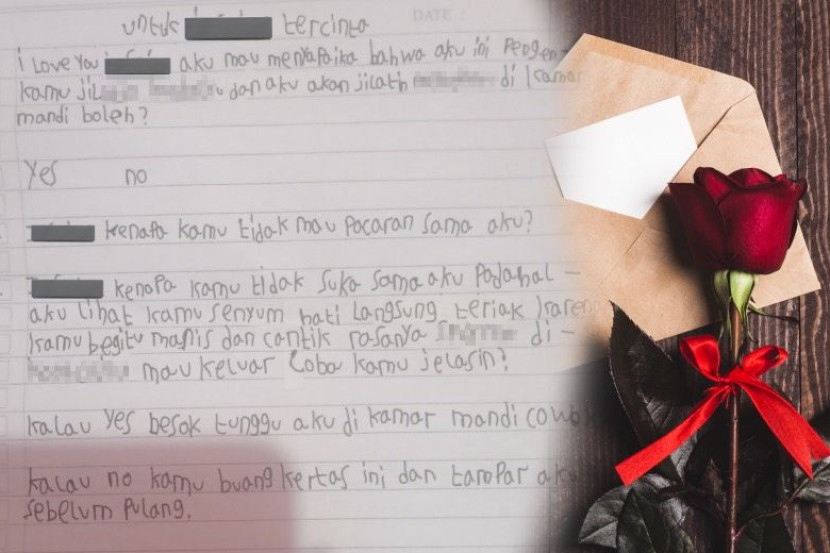 DATE
untuk tercinta
i Love You aku mau menyapaika bahwa aku ini Pengen -
kamu dan aku akan jilath di kamar
mandi boleh?
Yes no
kenapa kamu tidak mau Pacaran sama aku?
kenapa kamu tidak suka sama aku Padahal -
aku lihat kamu senyum hati Langsung teriak karena
kamu begitu manis dan cantik rasanya di -
mau keluar Coba kamu jelasin?
kalau Yes besok tunggu aku di kamar mandi
kalau no kamu buang kertas ini dan tampar aku
sebelum Pulang.